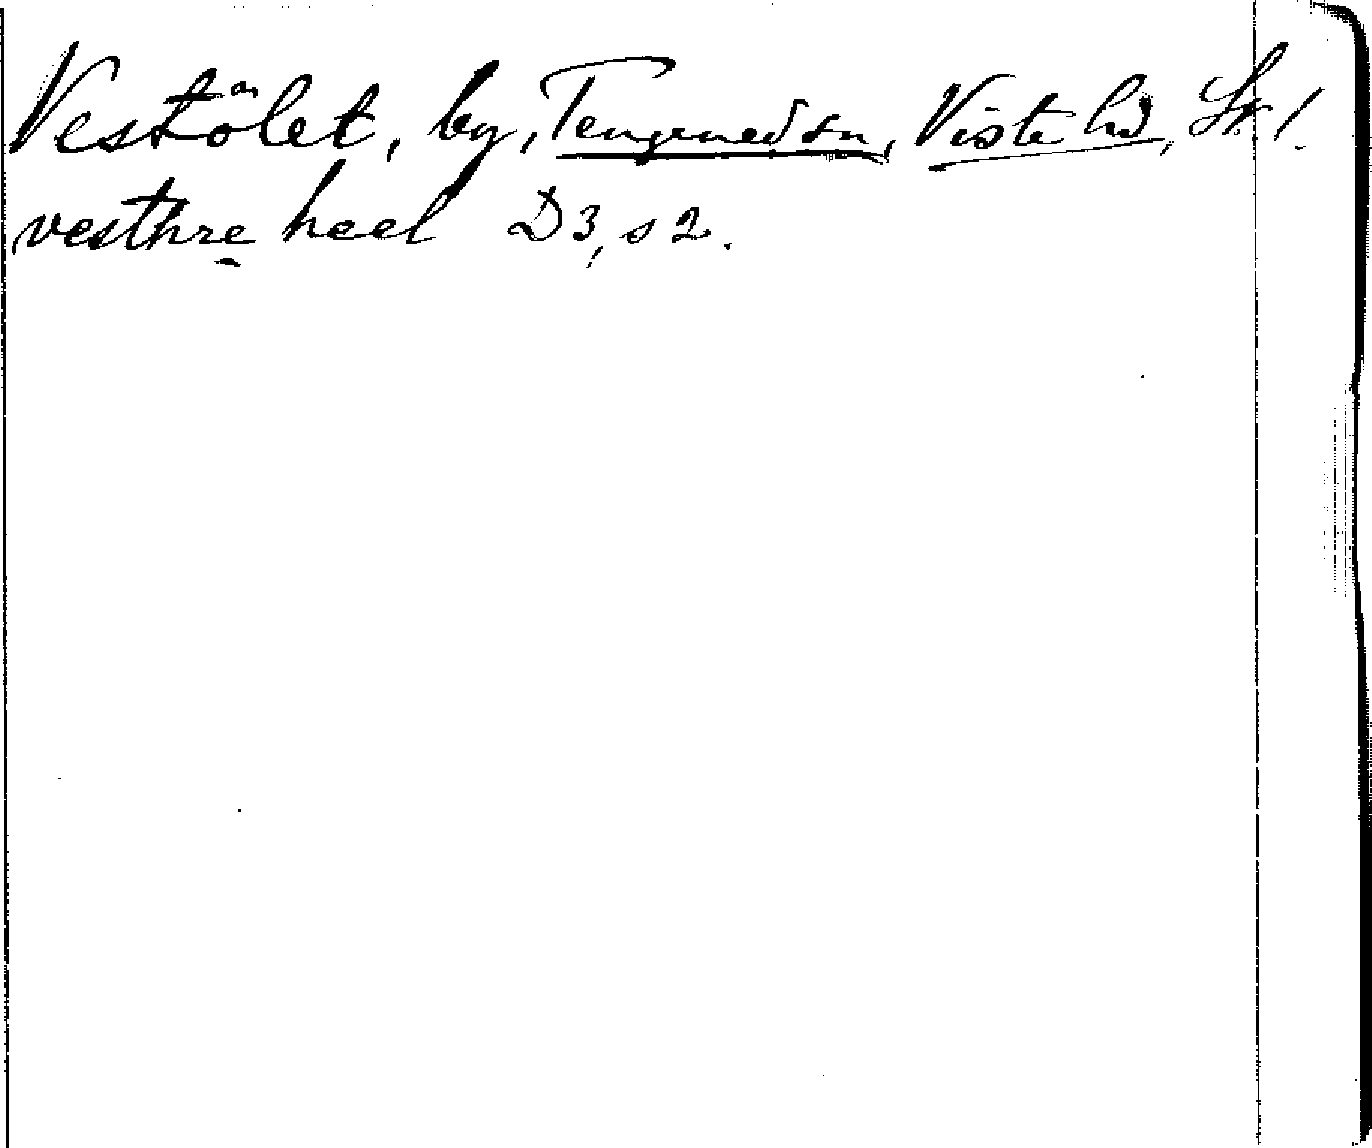 Vestölet, by, Tengened sn, Viste hd, Sk l.
vesthre heel D3, s 2.